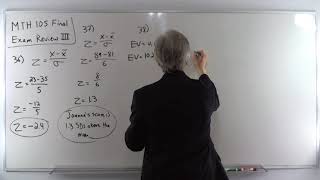 MTH 105 Final
Exam Review III
36)
Z = x-x̄ / σ
Z = 23-35 / 5
Z = -12 / 5
Z = -2.4
37)
Z = x-x̄ / σ
Z = 89-81 / 6
Z = 8 / 6
Z = 1.3
1.3 SDs above the
mean
38)
EV =
EV = 10.2